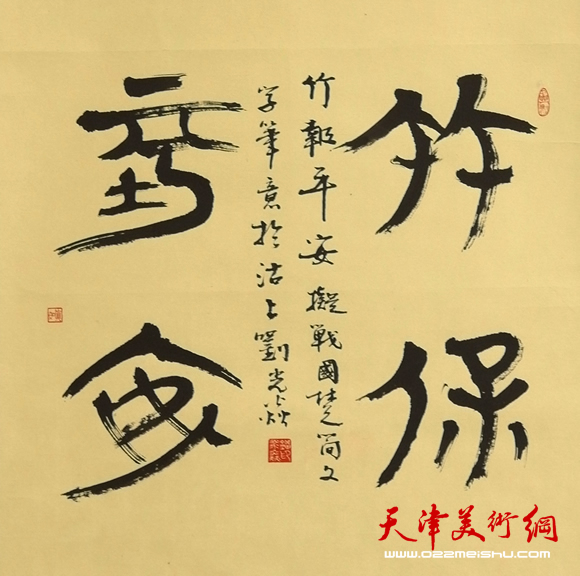 竹保
竹報平安擬戰國楚简文
字筆意於沽上劉光
平安
天津美術網
www.022meishu.com